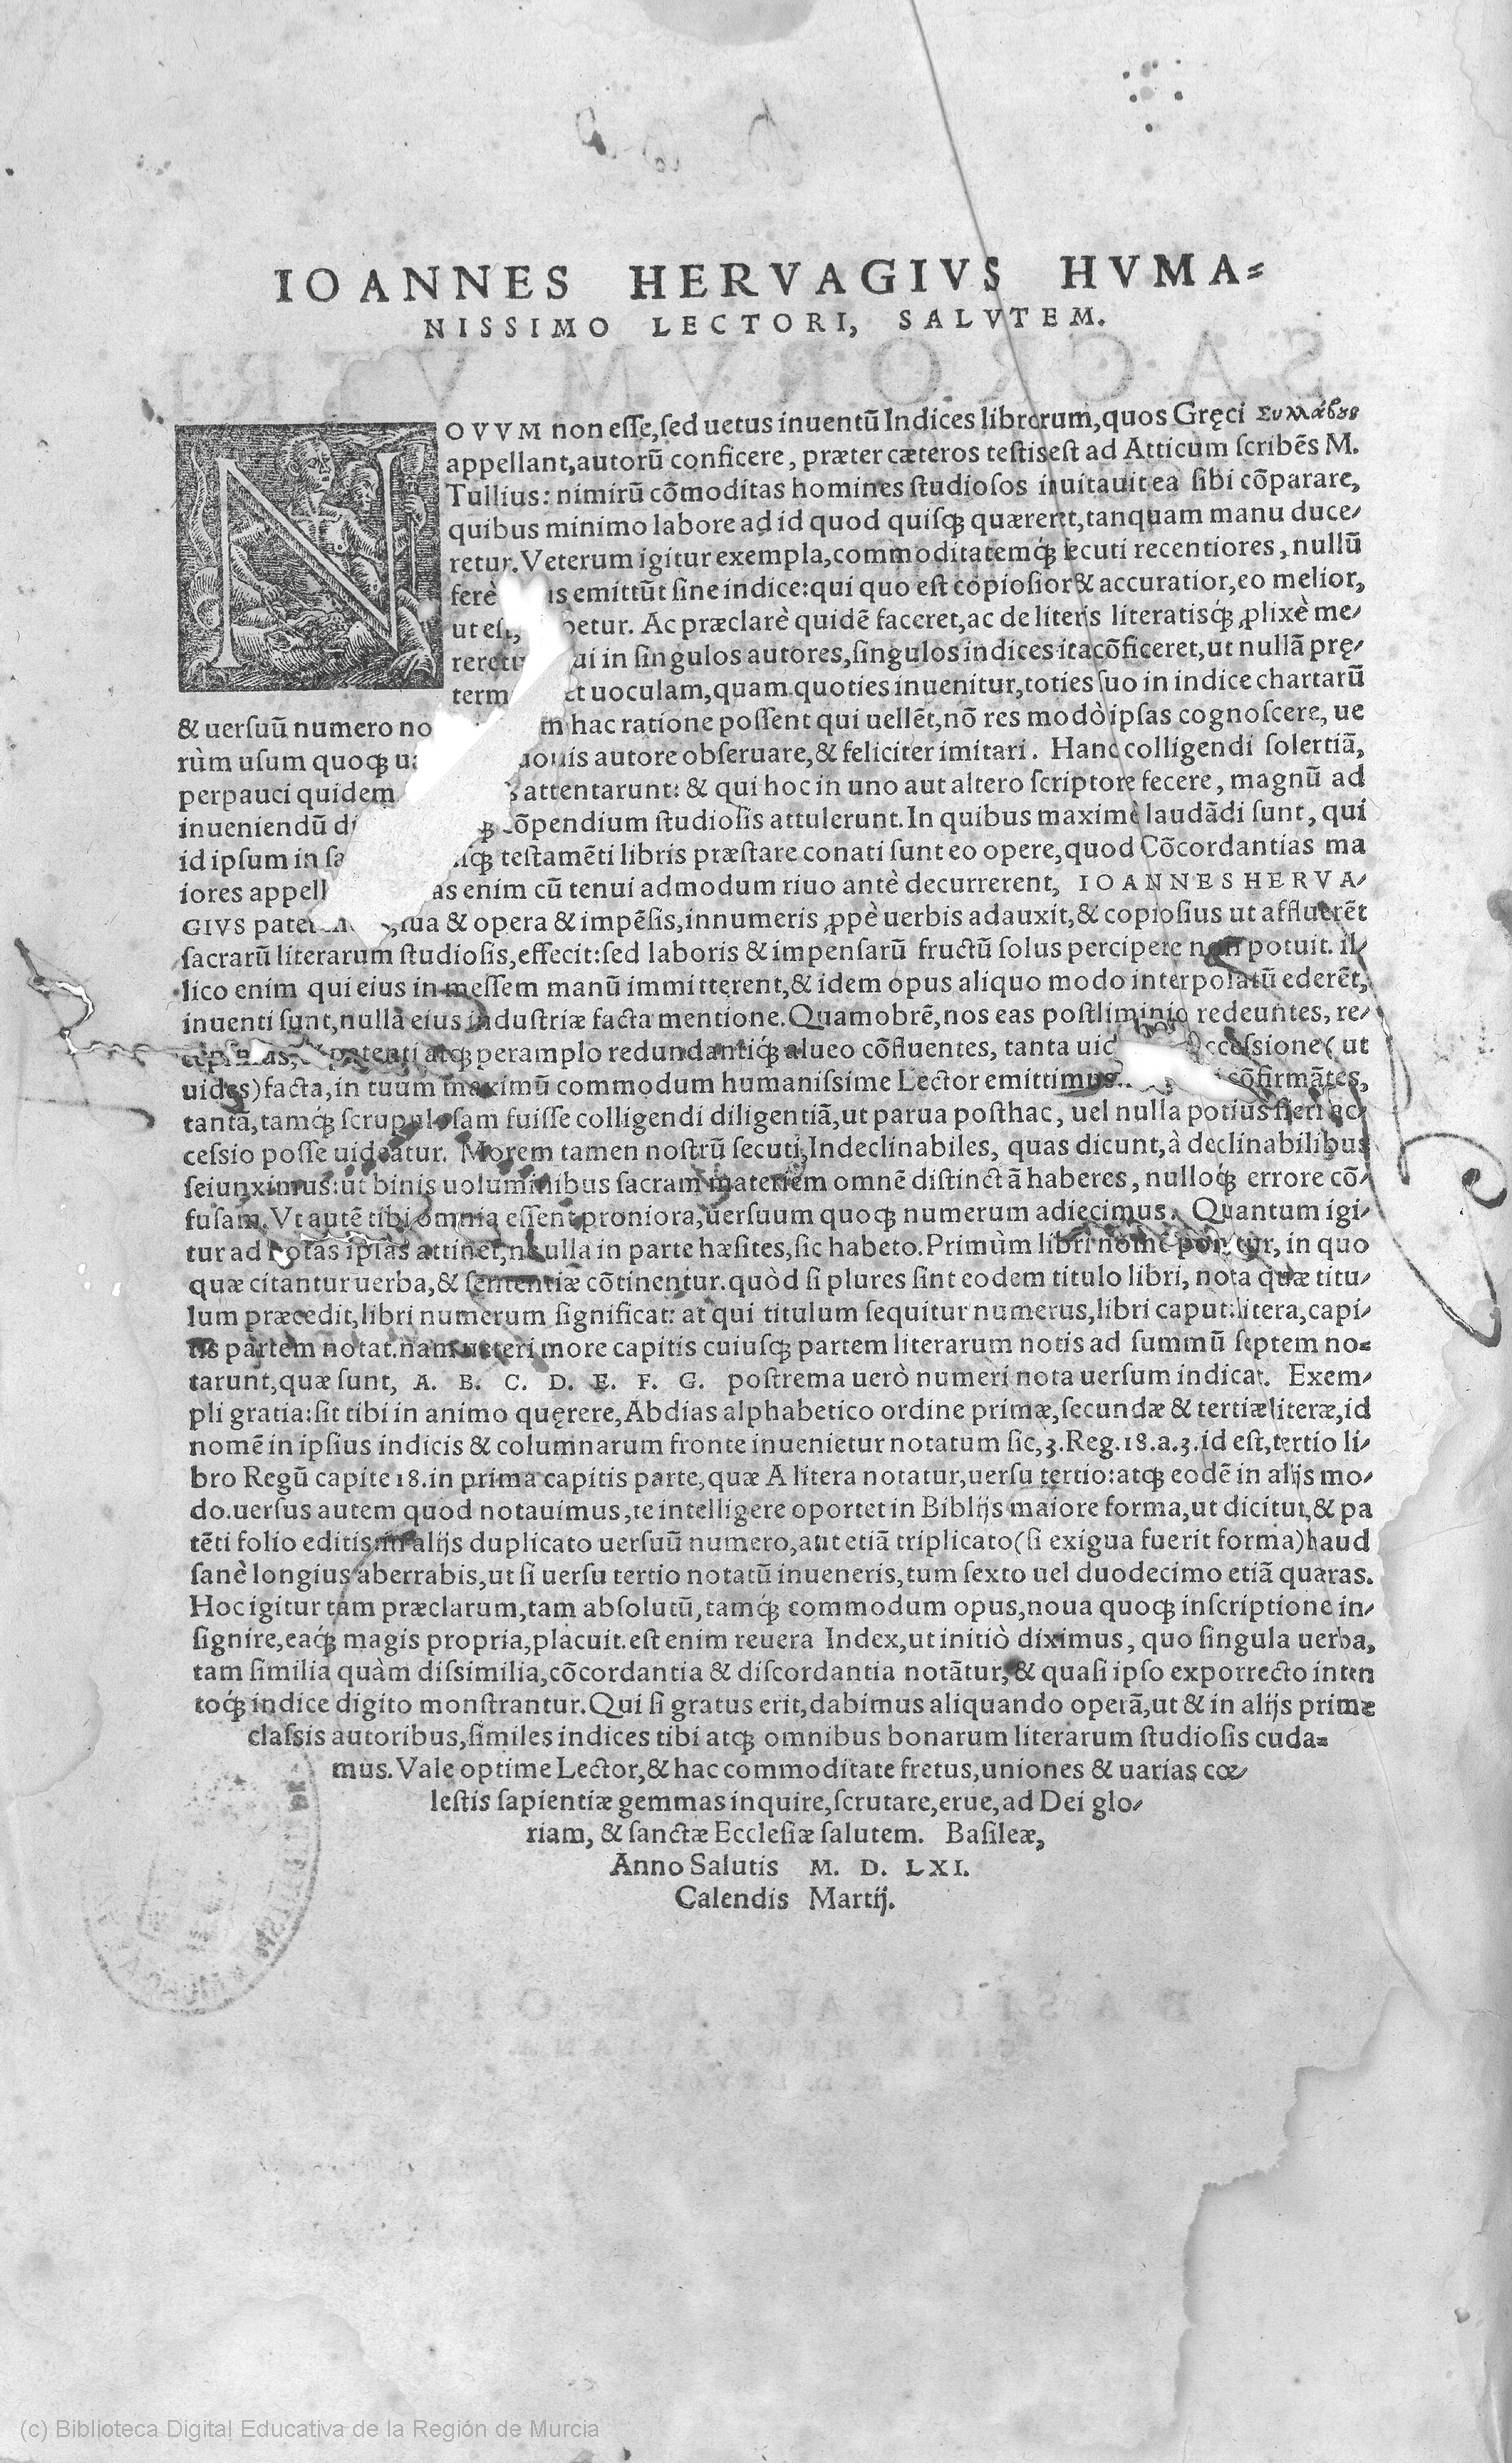 IOANNES HERVAGIVS HVMA=
NISSIMO LECTORI, SALVTEM.
NOVVM non esse, sed uetus inuentū Indices librorum, quos Gręci
appellant, autorū conficere, præter cæteros testis est ad Atticum scribēs M.
Tullius: nimirū cōmoditas homines studiosos inuitauit ea sibi cōparare,
quibus minimo labore ad id quod quisq; quæreret, tanquam manu duce-
retur. Veterum igitur exempla, commoditatemq́; secuti recentiores, nullū
ferè emittūt sine indice: qui quo est copiosior & accuratior, eo melior,
ut est, Ac præclarè quidē faceret, ac de literis literatisq́; prolixè me-
in singulos autores, singulos indices ita cōficeret, ut nullā prę-
uoculam, quam quoties inuenitur, toties suo in indice chartarū
& uersuū numero hac ratione possent qui uellēt, nō res modò ipsas cognoscere, ue
rùm usum quoq; autore obseruare, & feliciter imitari. Hanc colligendi solertiā,
perpauci quidem attentarunt: & qui hoc in uno aut altero scriptore fecere, magnū ad
inueniendū cōpendium studiosis attulerunt. In quibus maximè laudādi sunt, qui
id ipsum in testamēti libris præstare conati sunt eo opere, quod Cōcordantias ma
iores enim cū tenui admodum riuo antè decurrerent, IOANNES HERVA-
GIVS sua & opera & impēsis, innumeris ꝓpè uerbis adauxit, & copiosius ut affluerēt
sacrarū literarum studiosis, effecit: sed laboris & impensarū fructū solus percipere non potuit. il-
lico enim qui eius in messem manū immitterent, & idem opus aliquo modo interpolatū ederēt,
inuenti sunt, nulla eius industriæ facta mentione. Quamobrē, nos eas postliminio redeuntes, re-
patenti atq; peramplo redundantiq́; alueo cōfluentes, tanta accessione (ut
uides) facta, in tuum maximū commodum humanissime Lector emittimus cōfirmātes,
tantā, tamq́; scrupulosam fuisse colligendi diligentiā, ut parua posthac, uel nulla potius fieri ac-
cessio posse uideatur. Morem tamen nostrū secuti, Indeclinabiles, quas dicunt, à declinabilibus
seiunximus: ut binis uoluminibus sacram materiem omnē distinctā haberes, nulloq́; errore cō-
fusam. Vt autē tibi omnia essent proniora, uersuum quoq; numerum adiecimus. Quantum igi-
tur ad notas ipsas attinet, ne ulla in parte hæsites, sic habeto. Primùm libri nomē ponitur, in quo
quæ citantur uerba, & sententiæ cōtinentur. quòd si plures sint eodem titulo libri, nota quæ titu-
lum præcedit, libri numerum significat: at qui titulum sequitur numerus, libri caput: litera, capi-
tis partem notat. nam ueteri more capitis cuiusq; partem literarum notis ad summū septem no=
tarunt, quæ sunt, A. B. C. D. E. F. G. postrema uerò numeri nota uersum indicat. Exem-
pli gratia: sit tibi in animo quęrere, Abdias alphabetico ordine primæ, secundæ & tertiæ literæ, id
nomē in ipsius indicis & columnarum fronte inuenietur notatum sic, 3. Reg. 18. a. 3. id est, tertio li-
bro Regū capite 18. in prima capitis parte, quæ A litera notatur, uersu tertio: atq; eodē in alijs mo-
do. uersus autem quod notauimus, te intelligere oportet in Biblijs maiore forma, ut dicitur, & pa
tēti folio editis: in alijs duplicato uersuū numero, aut etiā triplicato (si exigua fuerit forma) haud
sanè longius aberrabis, ut si uersu tertio notatū inueneris, tum sexto uel duodecimo etiā quæras.
Hoc igitur tam præclarum, tam absolutū, tamq́; commodum opus, noua quoq; inscriptione in-
signire, eaq́; magis propria, placuit. est enim reuera Index, ut initiò diximus, quo singula uerba,
tam similia quàm dissimilia, cōcordantia & discordantia notātur, & quasi ipso exporrecto inten
toq́; indice digito monstrantur. Qui si gratus erit, dabimus aliquando operā, ut & in alijs primæ
classis autoribus, similes indices tibi atq; omnibus bonarum literarum studiosis cuda=
mus. Vale optime Lector, & hac commoditate fretus, uniones & uarias cœ-
lestis sapientiæ gemmas inquire, scrutare, erue, ad Dei glo-
riam, & sanctæ Ecclesiæ salutem. Basileæ,
Anno Salutis M. D. LXI.
Calendis Martij.
(c) Biblioteca Digital Educativa de la Región de Murcia